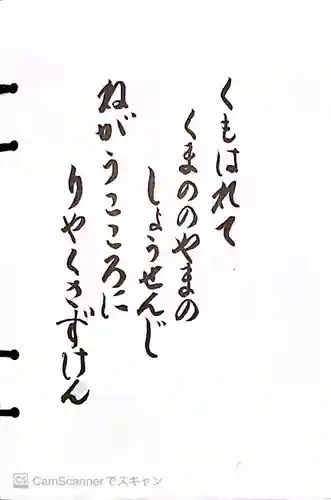 くもはれて
くまののやまの
しょうせんじ
ねがうこころに
りやくさずけん
CS CamScannerでスキャン